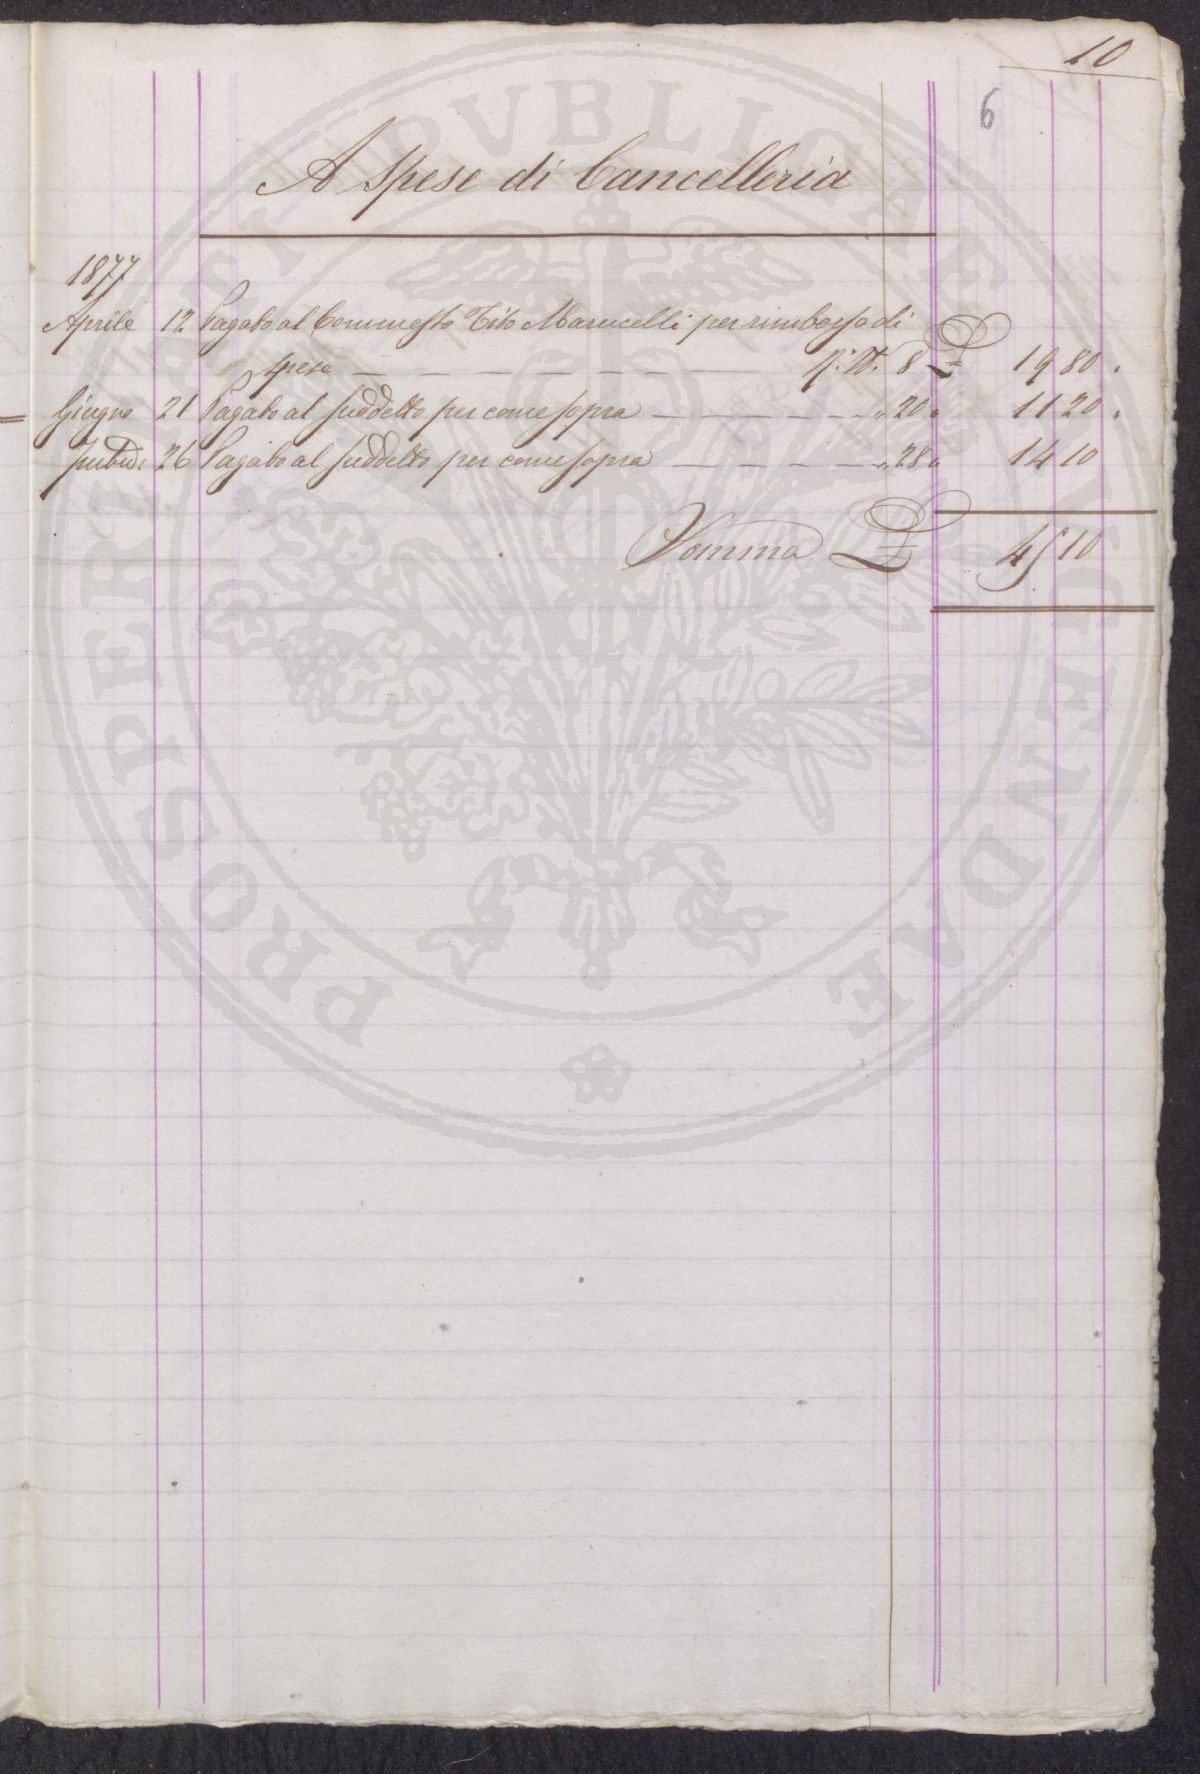 10
6
A spese di Cancelleria
1877
Aprile 12 Pagato al Commesso Tito Marucelli per rimborso di
spese — — — — — — — N. 8 £ 19 80 "
Giugno 21 Pagato al suddetto per come sopra — — — — — " 20 " 11 20 "
26 Pagato al suddetto per come sopra — — — — — " 28 " 14 10
Somma £ 45 10
PROSPERITATI PVBLICAE AVGENDAE